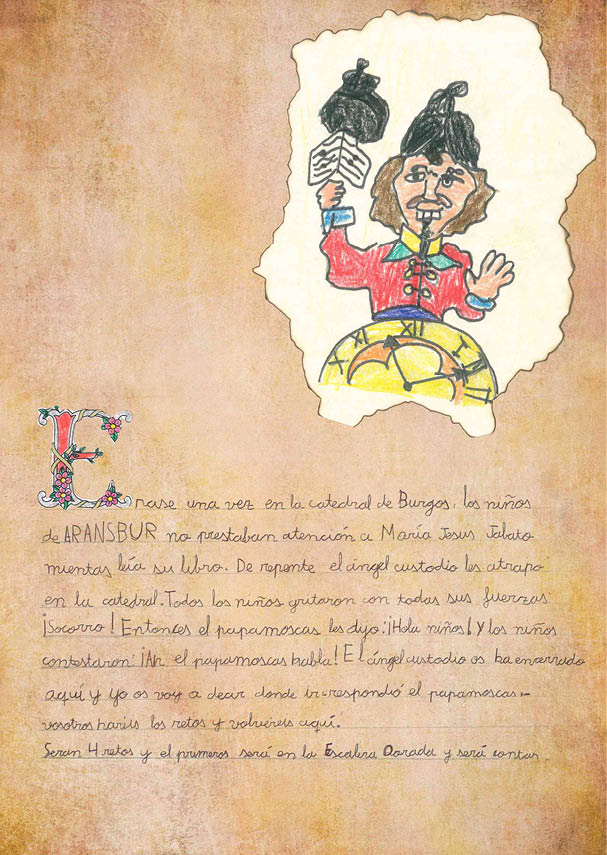 X XI XII I
Erase una vez en la catedral de Burgos, los niños
de ARANSBUR no prestaban atención a María Jesus Jabato
mientas leía su libro. De repente el ángel custodio les atrapo
en la catedral. Todos los niños gritaron con todas sus fuerzas:
¡Socorro! Entonces el papamoscas les dijo: ¡Hola niños! Y los niños
contestaron: ¡Ah el papamoscas habla! El ángel custodio os ha encerrado
aquí y yo os voy a decir donde ir-respondió el papamoscas-
vosotros haréis los retos y volveréis aquí.
Seran 4 retos y el primeros será en la Escalera Dorada y será contar